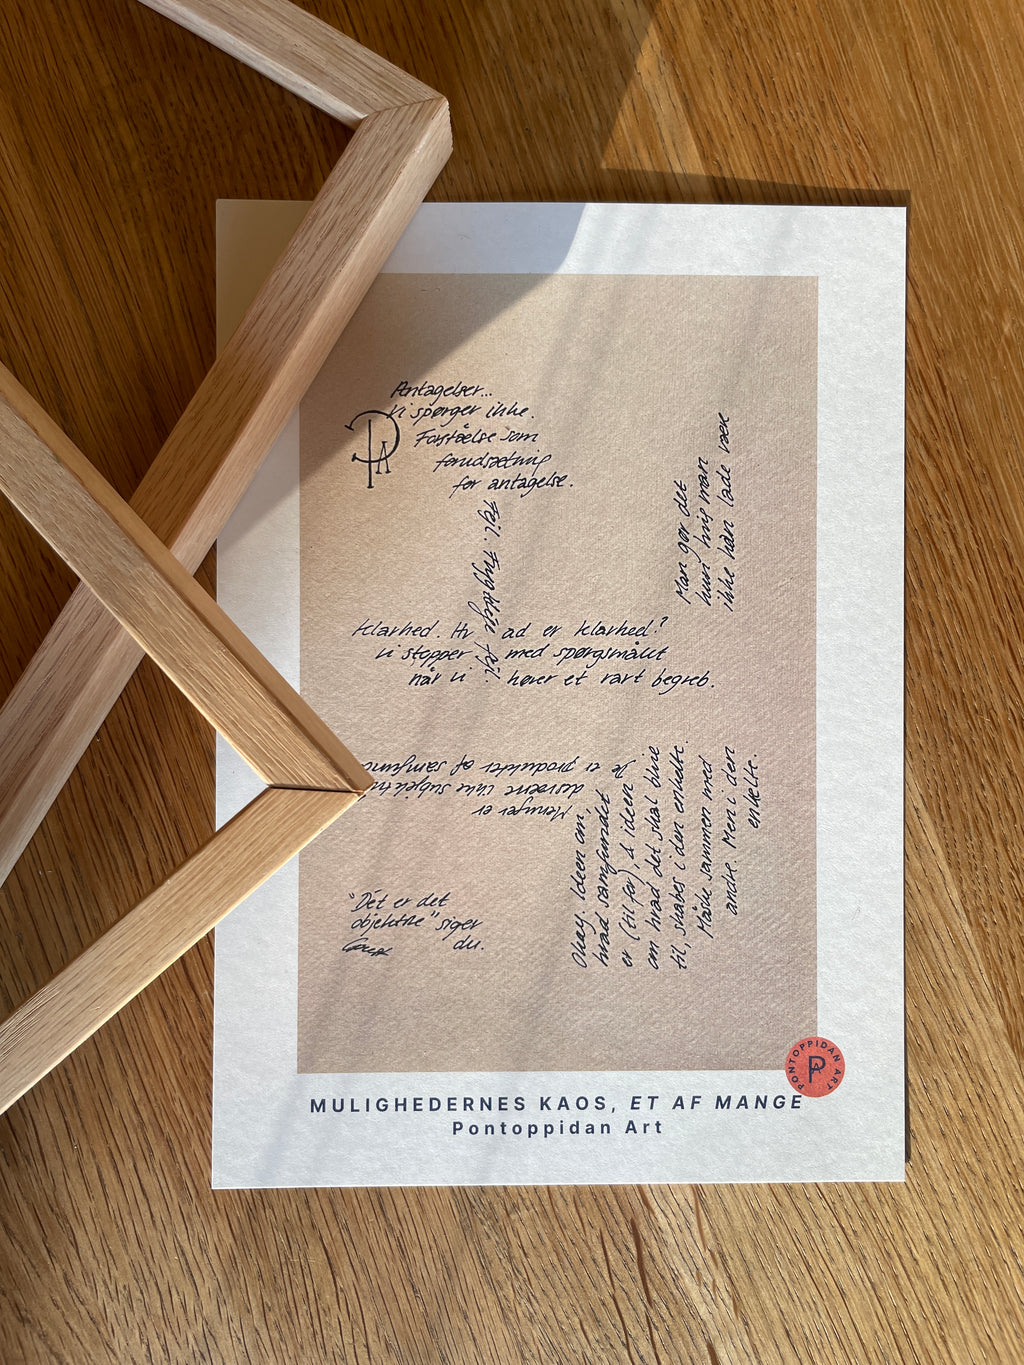 Antagelser...
Vi spørger ikke.
Forståelse som
forudsætning
for antagelse.
Fejl. Frygtelige fejl.
Man gør det
kun hvis man
ikke kan lade være
Klarhed. Hvad er klarhed?
Vi stopper med spørgsmålet
når vi hører et rart begreb.
Meninger er
desværre ikke
De er produkter af
Okay. Ideen om,
hvad samfundet
er (til for), & ideen
om hvad det skal blive
til, skabes i den enkelte.
Måske sammen med
andre. Men i den
enkelte.
"Det er det
objektive" siger
du.
PONTOPPIDAN ART
PA
MULIGHEDERNES KAOS, ET AF MANGE
Pontoppidan Art